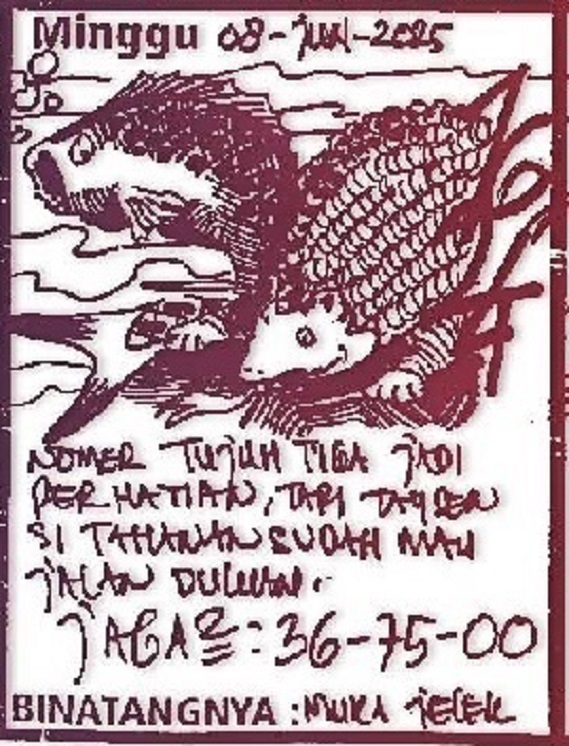 Minggu 08-JUN-2025
NOMER TUJUH TIGA JADI
PERHATIAN, TAPI TAYSEN
SI TAHUNAN SUDAH MAU
JALAN DULUAN.
JAGA2 : 36-75-00
BINATANGNYA : MUKA JELEK